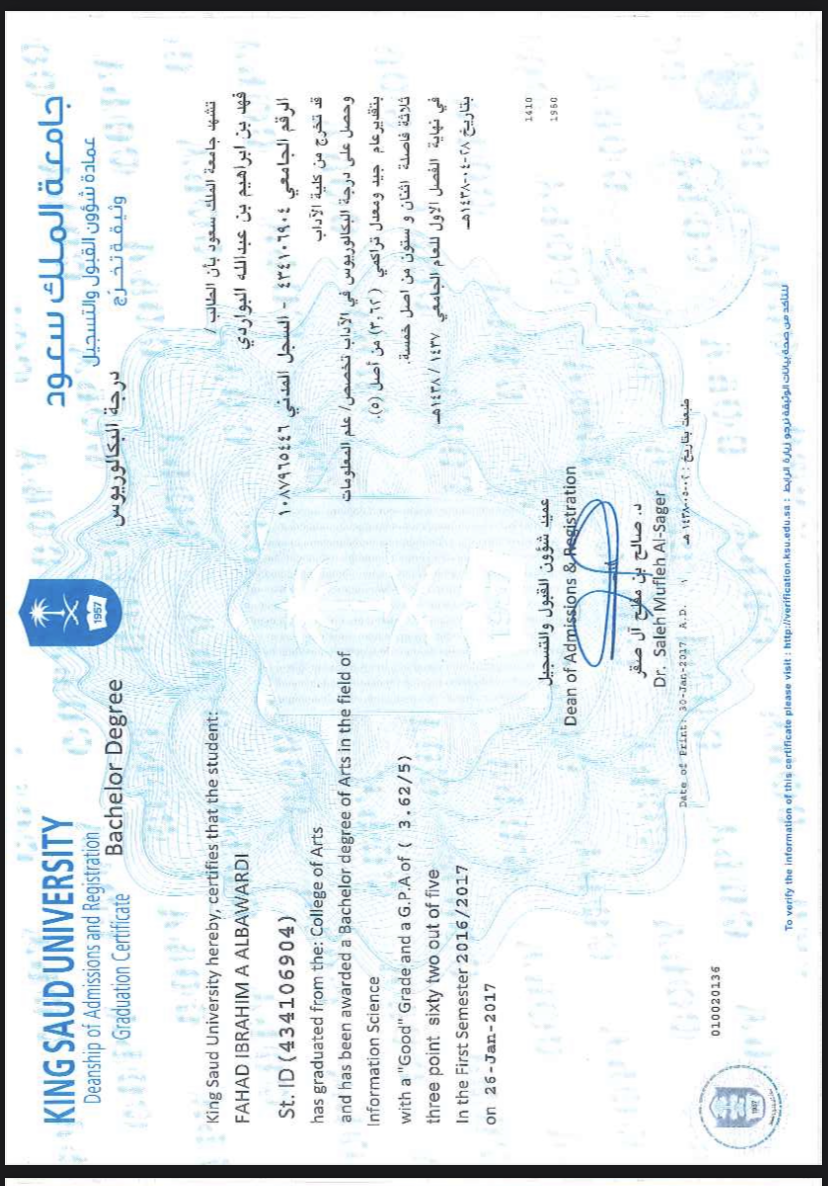 KING SAUD UNIVERSITY
Deanship of Admissions and Registration
Graduation Certificate
Bachelor Degree
1957
جامعة الملك سعود
عمادة شؤون القبول والتسجيل
وثيقة تخرج
درجة البكالوريوس
King Saud University hereby, certifies that the student:
FAHAD IBRAHIM A ALBAWARDI
St. ID (434106904)
has graduated from the: College of Arts
and has been awarded a Bachelor degree of Arts in the field of
Information Science
with a "Good" Grade and a G.P.A of ( 3.62/5)
three point sixty two out of five
In the First Semester 2016/2017
on 26-Jan-2017
تشهد جامعة الملك سعود بأن الطالب /
فهد بن ابراهيم بن عبدالله البواردي
الرقم الجامعي ٤٣٤١٠٦٩٠٤ - السجل المدني ١٠٨٧٩٦٥٤٤٦
قد تخرج من كلية الآداب
وحصل على درجة البكالوريوس في الآداب تخصص/ علم المعلومات
بتقدير عام جيد ومعدل تراكمي (٣,٦٢) من أصل (٥).
ثلاثة فاصلة اثنان و ستون من اصل خمسة.
في نهاية الفصل الاول للعام الجامعي ١٤٣٧ / ١٤٣٨هـ
بتاريخ ٢٨-٠٤-١٤٣٨هـ
1410
1960
عميد شؤون القبول والتسجيل
Dean of Admissions & Registration
د. صالح بن مفلح آل صقر
Dr. Saleh Mufleh Al-Sager
Date of Print: 30-Jan-2017 A.D. ١
طبعت بتاريخ : ٠٢-٠٥-١٤٣٨ هـ
010020136
To verify the information of this certificate please visit : http://verification.ksu.edu.sa : للتأكد من صحة بيانات الوثيقة نرجو زيارة الرابط